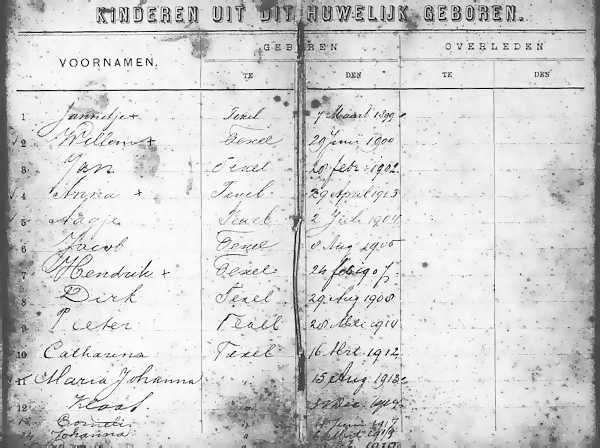 KINDEREN UIT DIT HUWELIJK GEBOREN.
VOORNAMEN. GEBOREN OVERLEDEN
TE DEN TE DEN
1 Jannetje + Texel 7 Maart 1899
2 Willem + Texel 29 Juni 1900
3 Jan Texel 28 febr. 1902
4 Anna + Texel 29 April 1903
5 Aagje Texel 2 Juli 1904
6 Jacob Texel 8 Aug
7 Hendrik + Texel 24
8 Dirk Texel 29 Aug 1908
9 Pieter Texel 28 1910
10 Catharina Texel 16 1912
11 Maria Johanna " 15 Aug 1913
12 Klaas " Dec
13 Cornelis " Juni 1917
14 Johanna " 1919